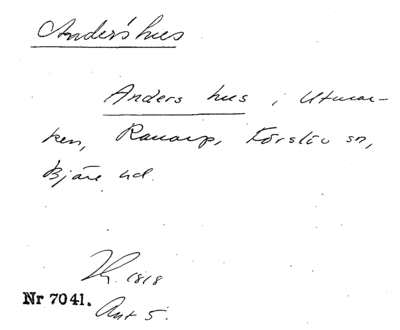 Anders hus
Anders hus i Utmar-
ken, Ranarp, Förslöv sn,
Bjäre hd.
1818
Nr 7041.
Ant 5.